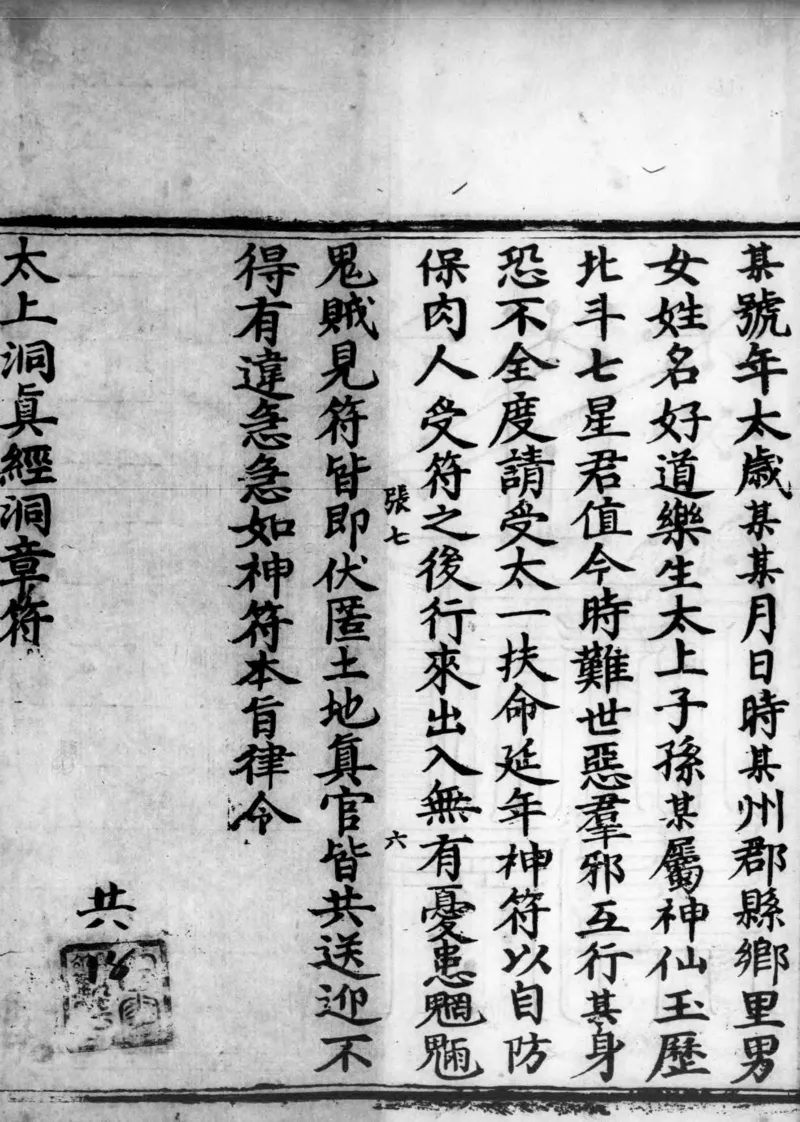 某號年太歲某某月日時某州郡縣鄉里男
女姓名好道樂生太上子孫某屬神仙玉歷
北斗七星君值今時難世惡羣邪互行其身
恐不全度請受太一扶命延年神符以自防
保肉人受符之後行來出入無有憂患魍魎
張七
六
鬼賊見符皆即伏匿土地真官皆共送迎不
得有違急急如神符本旨律令
共
太上洞眞經洞章符